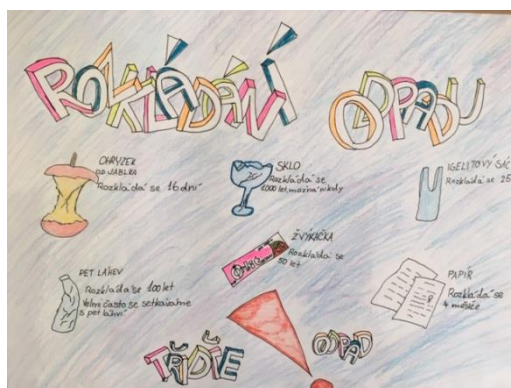 ROZKLÁDÁNÍ ODPADU
OHRYZEK
OD JABLKA
Rozkládá se 16 dní
SKLO
Rozkládá se
1000 let, možná nikdy
IGELITOVÝ SÁČ
Rozkládá se 25
ŽVÝKAČKA
Rozkládá se
50 let
PET LÁHEV
Rozkládá se 100 let
Velmi často se setkáváme
s pet láhví
PAPÍR
Rozkládá se
4 měsíce
TŘIĎTE ODPAD